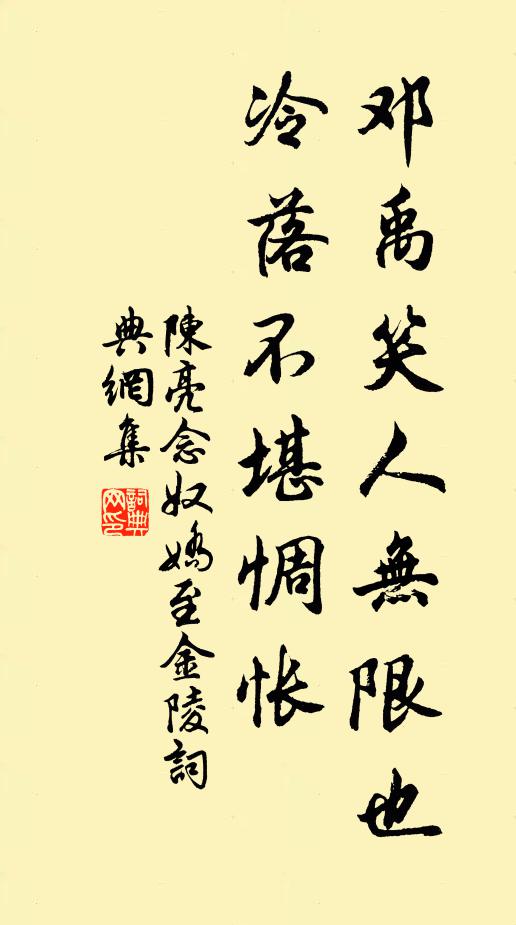 邓禹笑人無限也
冷落不堪惆怅
陳亮念奴嬌至金陵詞
典網集
詞典网印